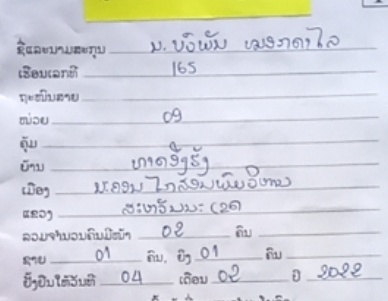 ຊື່ແລະນາມສະກຸນ ນ.
ເຮືອນເລກທີ 165
ຖະໜົນສາຍ
ໜ່ວຍ 09
ຄຸ້ມ
ບ້ານ
ເມືອງ ນະຄອນ ໄກສອນພົມວິຫານ
ແຂວງ ສະຫວັນນະເຂດ
ລວມຈຳນວນຄົນມີໜ້າ 02 ຄົນ
ຊາຍ 01 ຄົນ, ຍິງ 01 ຄົນ
ຢັ້ງຢືນໃຫ້ວັນທີ 04 ເດືອນ 02 ປີ 2022